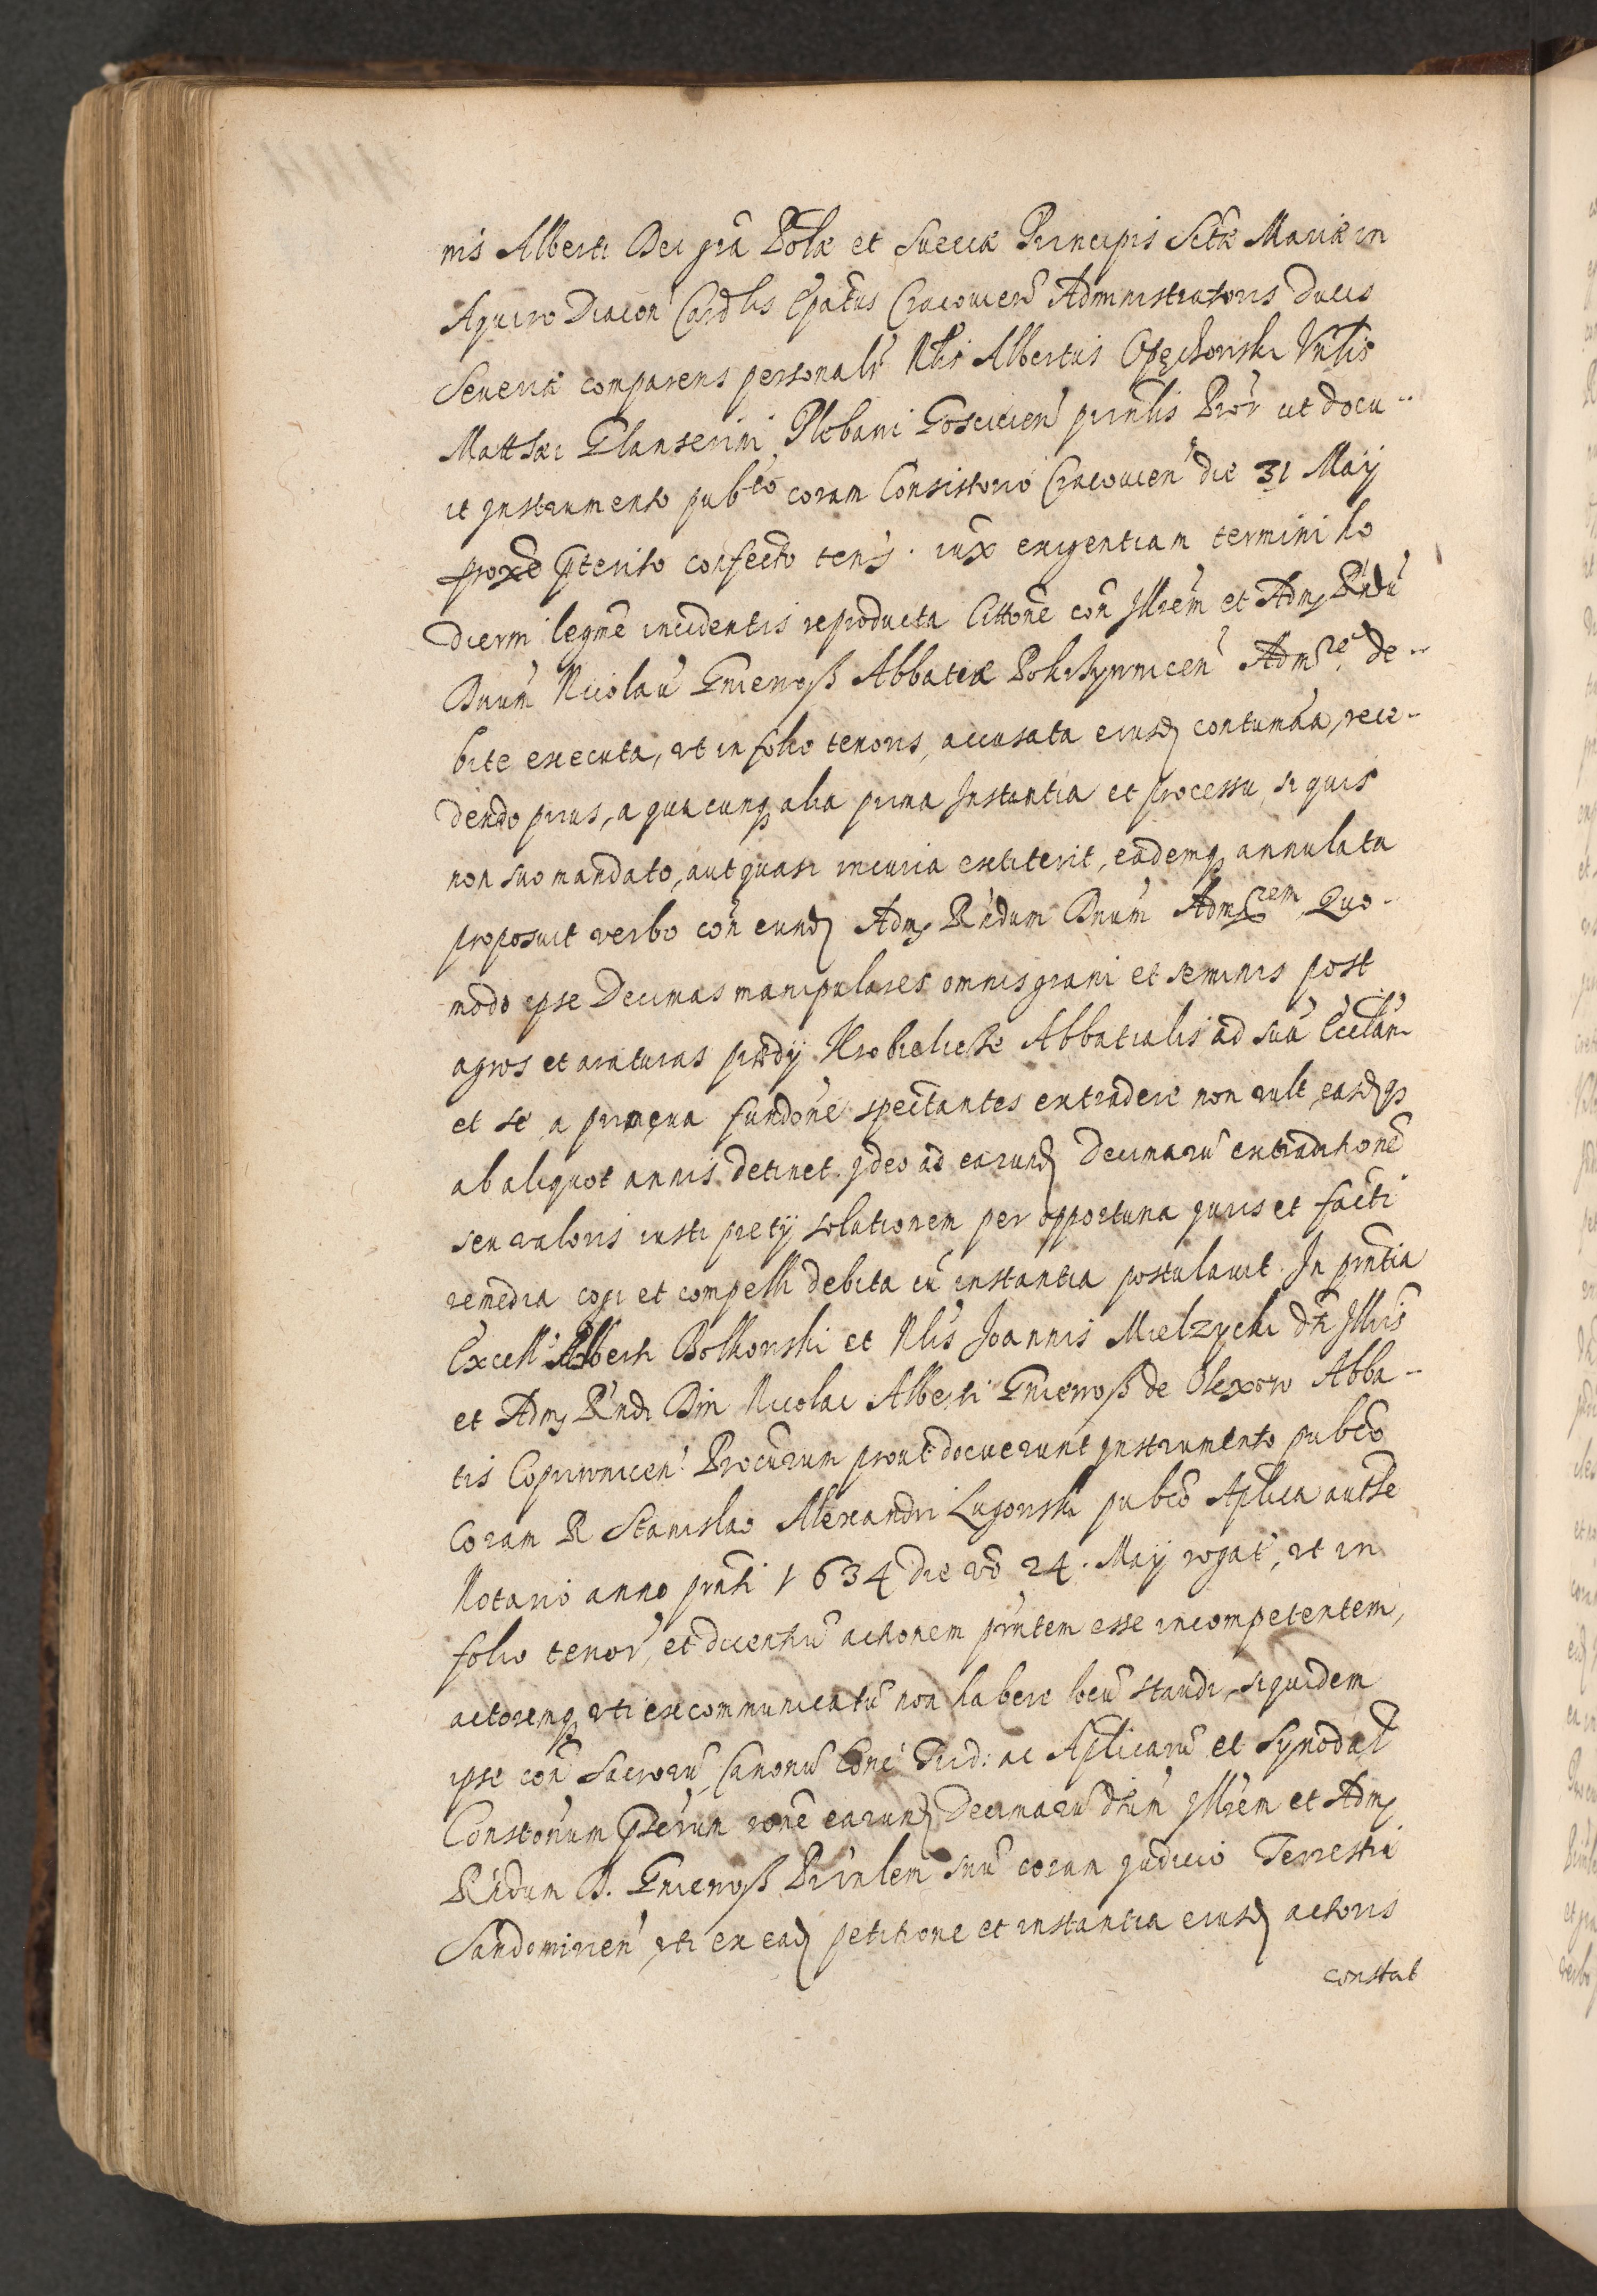 nis Alberti Dei grã Polæ et Sueciæ Principis Sctæ Mariæ in
Aquiro Diacon Cardlis Epatus Cracovien Administratoris Ducis
Severiæ comparens personalr Nblis Albertus Opęchowski Vnlis
Matthæi Glanserini Plebani Goscicien prinlis Pror ut docu-
it Instrumento pubco coram Consistorio Cracovien die 31 Maij
proxe pterito confecto tens. iux exigentiam termini ho
dierni legme incidentis reproducta Cittone con Illrem et Adm Rndu
Dnum Nicolau Gniewosz Abbatiæ Pokrzywnicen Admrẽ de-
bite executa, ut in folio tenoris, accusata eiusd contumãa, rece-
dendo prius, a quacunq alia prima Instantia et processu, si quis
non suo mandato, aut quasi incuria extiterit, eademq annulata
proposuit verbo con eund Adm Rndum Dnum Admrem, Quo-
modo ipse Decimas manipulares omnis grani et seminis post
agros et araturas prædij Krobielicze Abbatialis ad suã Ecclam
et se a primęva fundõne spectantes extradere non vult, easdq
ab aliquot annis detinet. Ideo ad earund Decimarũ extraditionẽ
seu valoris iusti pretij solutionem per opportuna iuris et facti
remedia cogi et compelli debita cũ instantia postulavit. In pñtia
Excell Alberti Bolkowski et Nblis Joannis Mielzycki dti Illris
et Adm Rndi Dni Nicolai Alberti Gniewosz de Olexow Abba-
tis Coprivnicen Procurum prout docuerunt Instrumento pubco
Coram R Stanislao Alexandri Lugowski pubco Aplica authe
Notario anno pñti 1634 die vo 24. Maij rogat, ut in
folio tenor, et dicentiũ actionem pñtem esse incompetentem,
actoremq uti excommunicatũ non habere locũ standi, siquidem
ipse con Sacrorũ Canonũ Conc Trid: ac Aplicarũ et Synodal
Constonum pserum rone earund Decimarũ dtum Illrem et Adm
Rndum D. Gniewosz Prinlem suũ coram Judicio Terrestri
Sandomirien, uti ex ead petitione et instantia eiusd actoris
constat